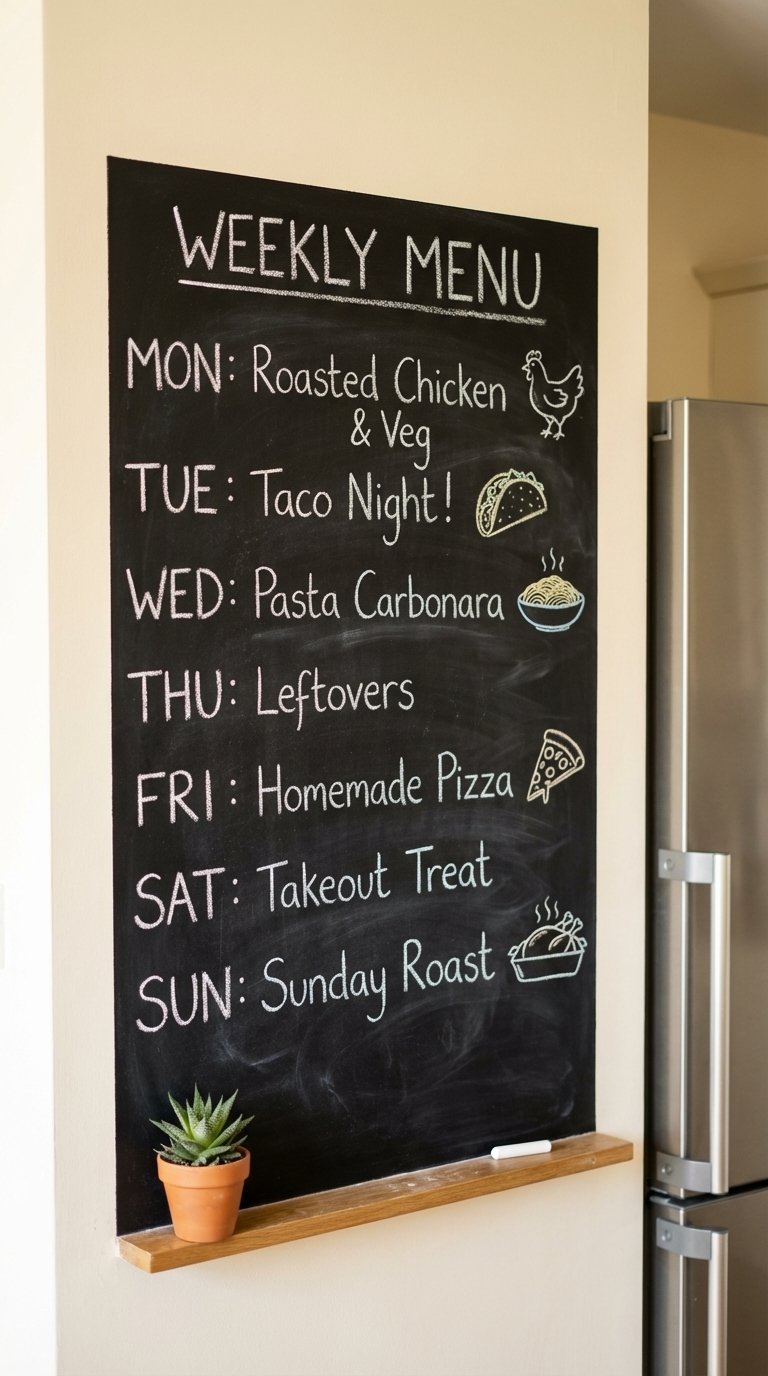 WEEKLY MENU
MON: Roasted Chicken
& Veg
TUE: Taco Night!
WED: Pasta Carbonara
THU: Leftovers
FRI: Homemade Pizza
SAT: Takeout Treat
SUN: Sunday Roast